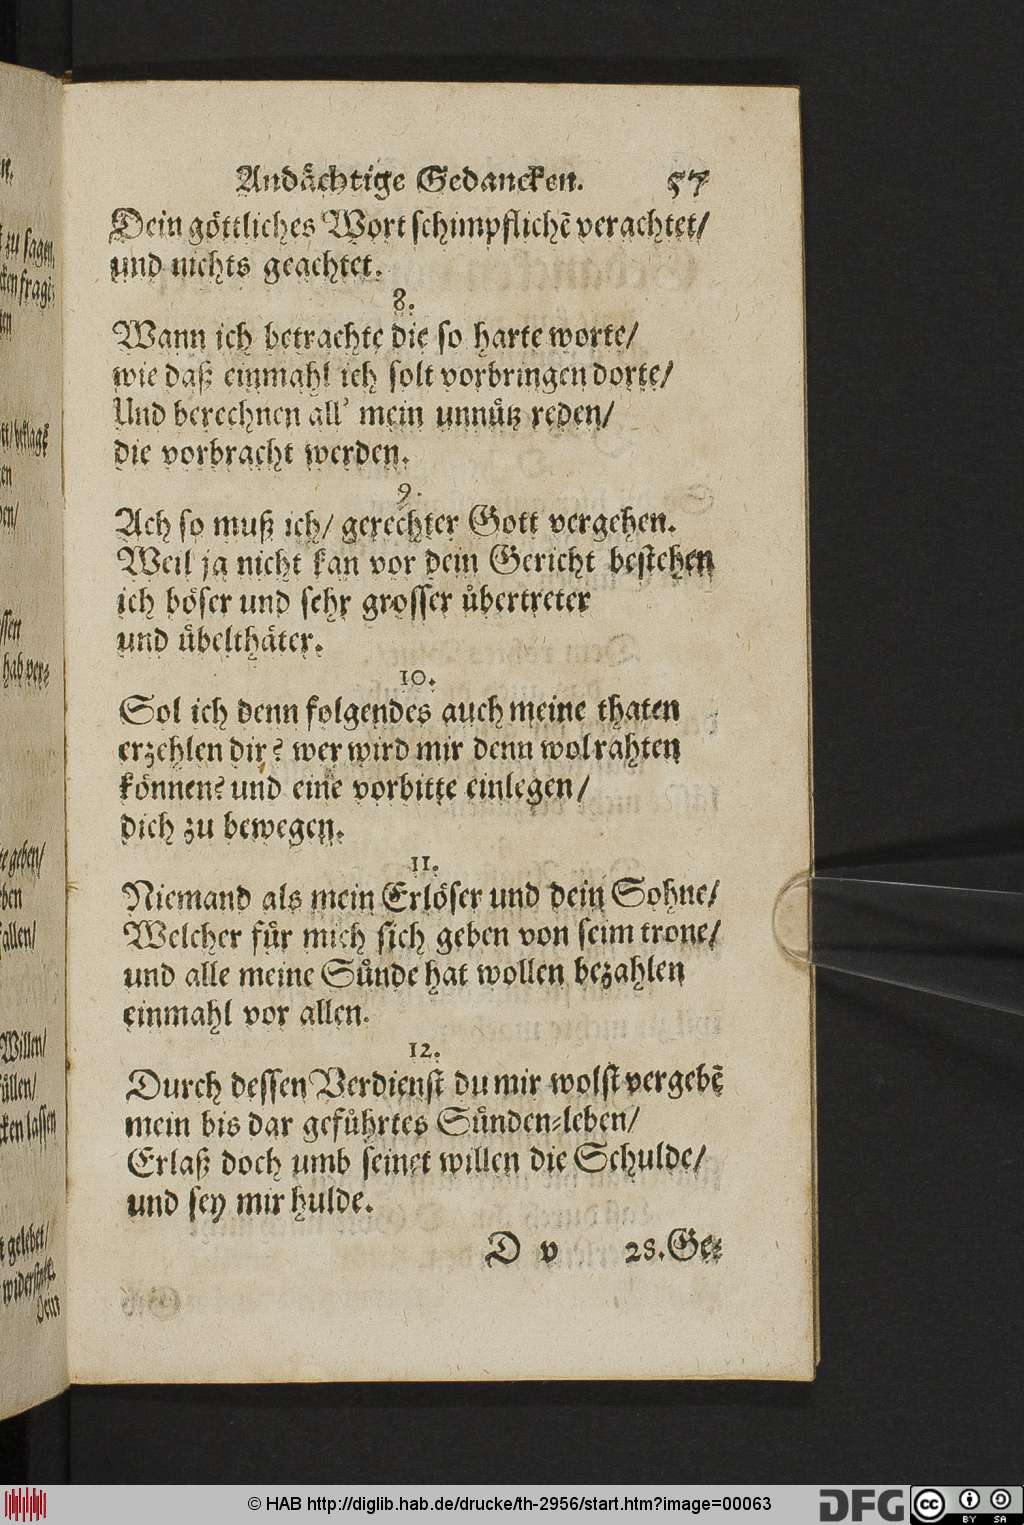 Andächtige Gedancken. 57
Dein göttliches Wort schimpflichē verachtet/
und nichts geachtet.
8.
Wann ich betrachte die so harte worte/
wie daß einmahl ich solt vorbringen dorte/
Und berechnen all' mein unnütz reden/
die vorbracht werden.
9.
Ach so muß ich/ gerechter Gott vergehen.
Weil ja nicht kan vor dein Gericht bestehen
ich böser und sehr grosser übertreter
und übelthäter.
10.
Sol ich denn folgendes auch meine thaten
erzehlen dir? wer wird mir denn wol rahten
können? und eine vorbitte einlegen/
dich zu bewegen.
11.
Niemand als mein Erlöser und dein Sohne/
Welcher für mich sich geben von seim trone/
und alle meine Sünde hat wollen bezahlen
einmahl vor allen.
12.
Durch dessen Verdienst du mir wolst vergebē
mein bis dar geführtes Sünden-leben/
Erlaß doch umb seinet willen die Schulde/
und sey mir hulde.
D v 28. Ge-
zu sagen,
hab ver-
geben/
Willen/
gelebet/
Dein
© HAB http://diglib.hab.de/drucke/th-2956/start.htm?image=00063
DFG
cc BY SA